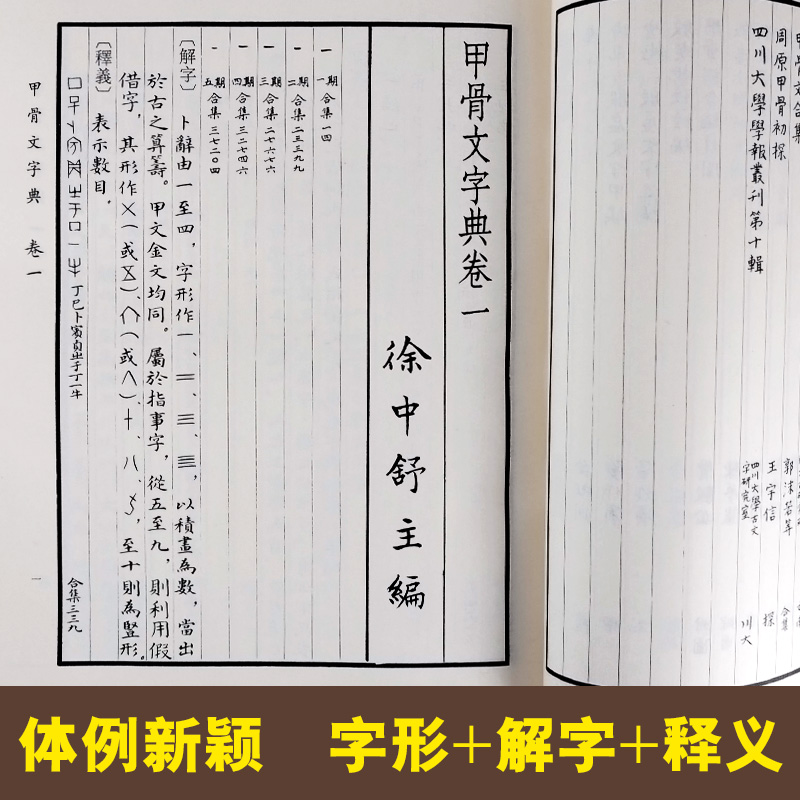 甲骨文合集 郭沫若等 合集
周原甲骨初探 王宇信 探
四川大學學報叢刊第十輯 四川大學古文字研究室 川大
甲骨文字典卷一
徐中舒主編
一 一期 合集一四
一 二期 合集二三三九九
一 三期 合集二七六七六
一 四期 合集三二七四六
一 五期 合集三七二〇四
〔解字〕 卜辭由一至四，字形作一、二、三、亖，以積畫為數，當出
於古之算籌。甲文金文均同。屬於指事字，從五至九，則利用假
借字，其形作
〔釋義〕 表示數目。
丁巳卜賓貞㞢于丁一牛 合集三三九
甲骨文字典 卷一
一
体例新颖 字形+解字+释义